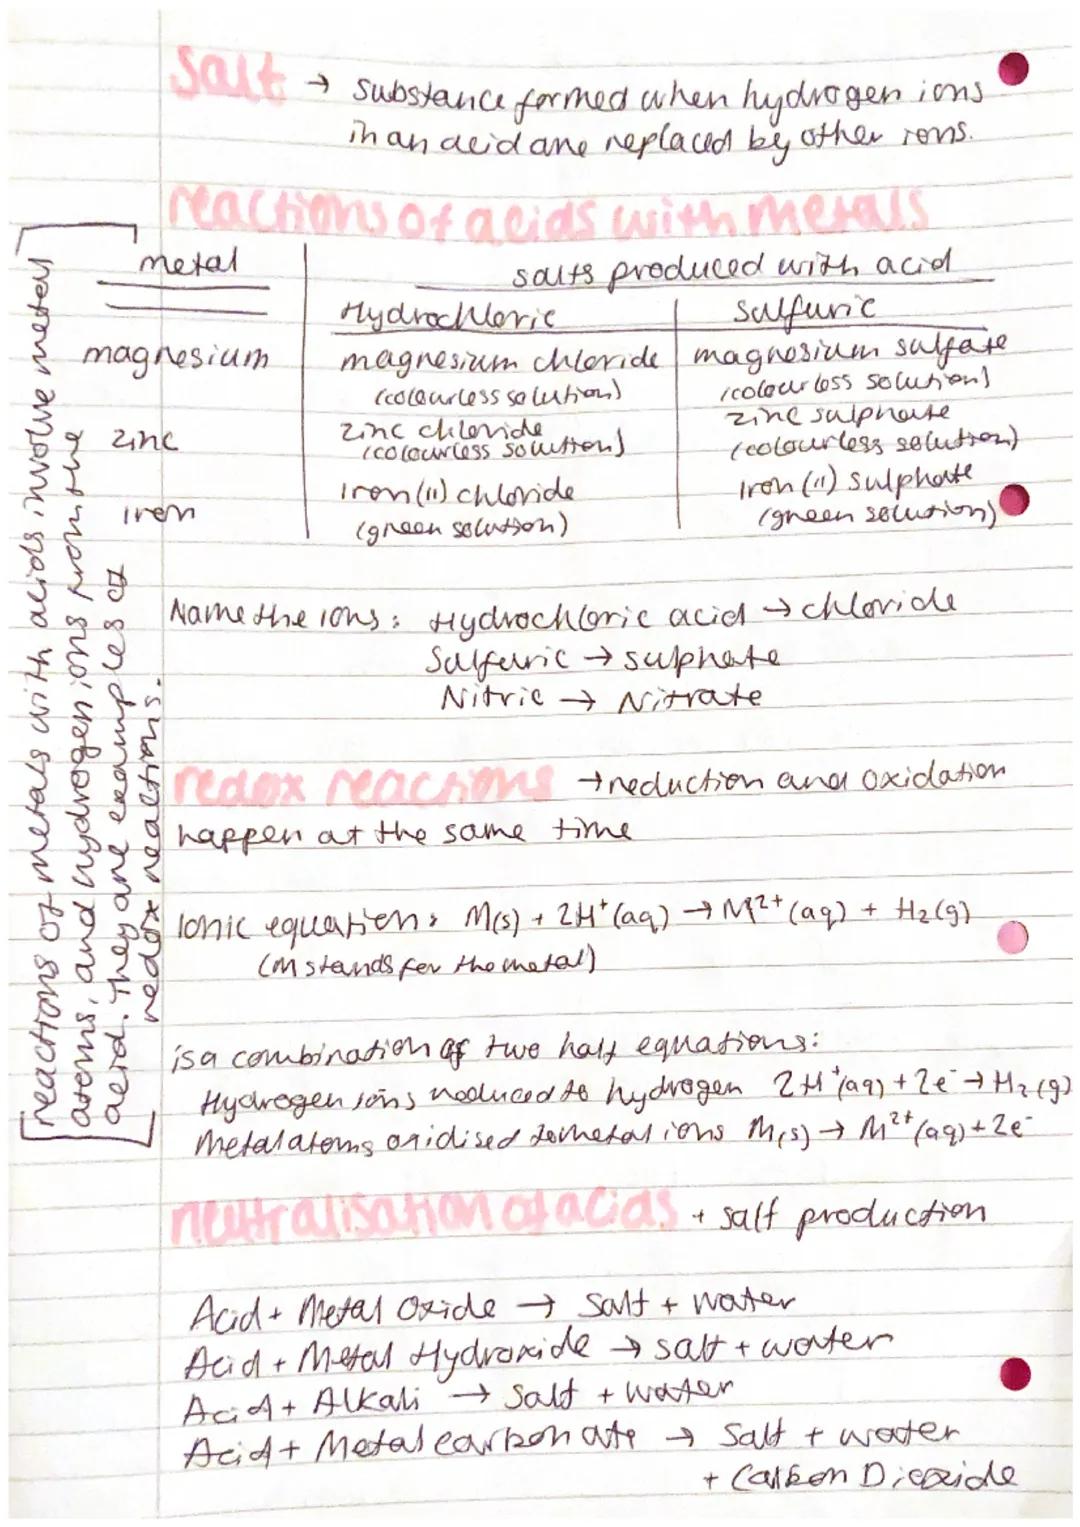 Salt → substance formed when hydrogen ions
in an acid are replaced by other ions.
reactions of acids with metals
metal
salts produced with acid
Hydrochloric
Sulfuric
magnesium
magnesium chloride
(colourless solution)
magnesium sulfate
(colourless solution)
zinc
zinc chloride
(colourless solution)
zinc sulphate
(colourless solution)
iron
Iron (II) chloride
(green solution)
Iron (II) sulphate
(green solution)
Name the ions: Hydrochloric acid → chloride
Sulfuric → sulphate
Nitric → Nitrate
redox reactions → reduction and oxidation
happen at the same time
Ionic equation: M(s) + 2H⁺(aq) → M²⁺(aq) + H₂(g)
(M stands for the metal)
is a combination of two half equations:
Hydrogen ions reduced to hydrogen 2H⁺(aq) + 2e⁻ → H₂(g)
Metal atoms oxidised to metal ions M(s) → M²⁺(aq) + 2e⁻
neutralisation of acids + salt production
Acid + Metal Oxide → Salt + Water
Acid + Metal Hydroxide → salt + water
Acid + Alkali → Salt + Water
Acid + Metal carbonate → Salt + water
+ Carbon Dioxide
reactions of metals with acids involve metal
atoms, and hydrogen ions from the
acid. They are examples of
redox reactions.